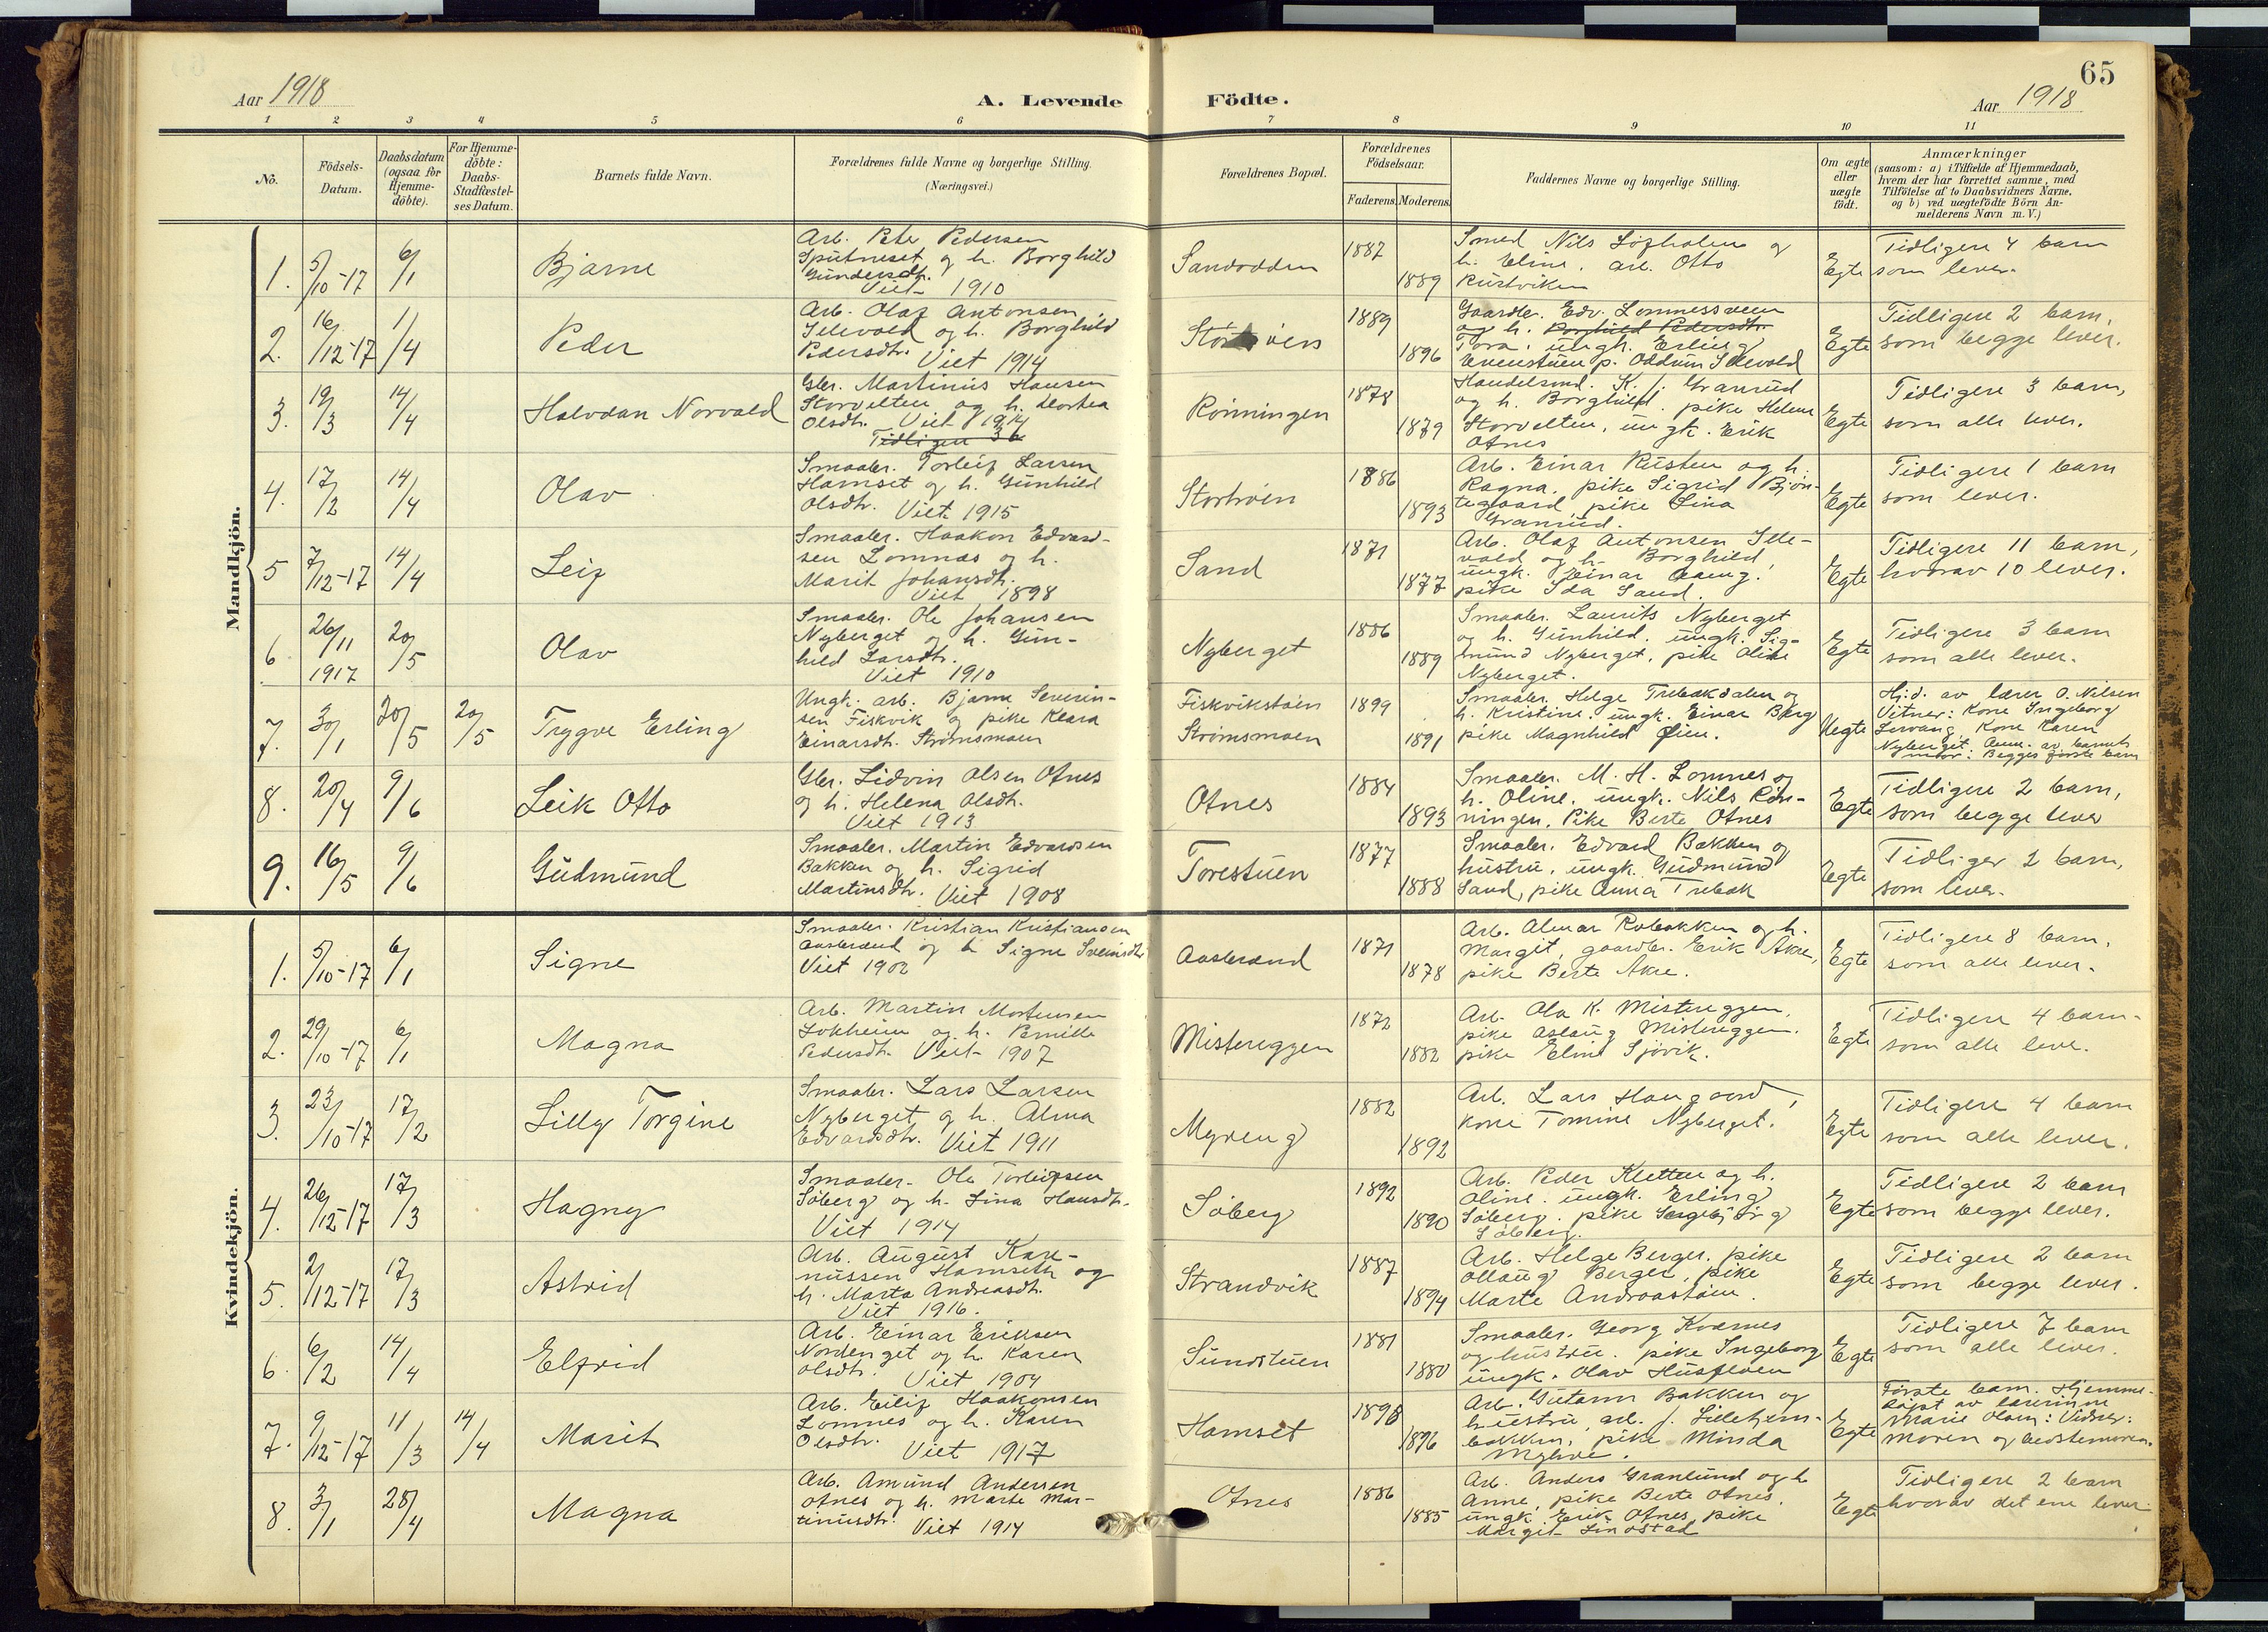 65
Aar 1918
A. Levende Födte.
Aar 1918
1 2 3 4 5 6 7 8 9 10 11
No.
Födsels-
Datum.
Daabsdatum
(ogsaa for
Hjemme-
döbte).
For Hjemme-
döbte:
Daabs-
Stadfæstel-
ses Datum.
Barnets fulde Navn.
Forældrenes fulde Navne og borgerlige Stilling.
(Næringsvei.)
Forældrenes Bopæl.
Forældrenes
Födselsaar.
Faderens. Moderens.
Faddernes Navne og borgerlige Stilling.
Om ægte
eller
uægte
födt.
Anmærkninger
(saasom: a) i Tilfælde af Hjemmedaab,
hvem der har forrettet samme, med
Tilföielse af to Daabsvidners Navne,
og b) ved uægtefödte Börn An-
melderens Navn m. V.)
Mandkjön.
1. 5/10-17 6/1 Bjarne
Arb. Peter Pedersen
Sputneset og h. Borghild
Gundersdtr.
Viet 1910
Sandodden 1887 1889
Smed Nils Løfholen og
h. Eline. arb. Otto
Kustviken
Egte
Tidligere 4 barn
som lever.
2. 16/12-17 1/4 Peder
Arb. Olaf Antonsen
Selevold og h. Borghild
Pedersdtr. Viet 1914
1889 1896
Gaardbr. Edv. Lomnessveen
og h. Borghild Pedersdtr.
Tora. ungk. Erling
Evenstuen p. Oddun Selevold
Egte
Tidligere 2 barn,
som begge lever.
3. 19/3 14/4 Halvdan Norvald
Gbr. Martinius Hansen
Storvelten og h. Dorthea
Olsdtr. Viet 1914
Tidligere 3 b
Rønningen 1878 1879
Handelsmd. K. J. Granrud
og h. Borghild. pike Helene
Storvelten, ungk. Erik
Otnes
Egte
Tidligere 3 barn,
som alle lever.
4. 17/2 14/4 Olav
Smaabr. Torleif Larsen
Hamset og h. Gunhild
Olsdtr. Viet 1915
Storhøien 1886 1893
Arb. Einar Rusten og h.
Ragna. pike Sigrid Bjøn-
tegaard, pike Lina
Granrud.
Egte
Tidligere 1 barn
som lever.
5 7/12-17 14/4 Leif
Smaabr. Haakon Edvard-
sen Lomnæs og h.
Marit Johansdtr.
Viet 1898
Sand 1871 1877
Arb. Olaf Antonsen Sele-
vold og h. Borghild,
ungk. Einar Aaeng.
pike Ida Sand.
Egte
Tidligere 11 barn,
hvorav 10 lever.
6 26/11 1917 20/5 Olav
Smaabr. Ole Johansen
Nyberget og h. Gun-
hild Larsdtr.
Viet 1910
Nyberget 1886 1889
Smaabr. Laurits Nyberget
og h. Gunhild. ungk. Sig-
mund Nyberget, pike Oline
Nyberget.
Egte
Tidligere 3 barn
som alle lever.
7. 30/1 20/5 20/5 Trygve Erling
Ungk. arb. Bjarne Severin-
sen Fiskvik og pike Klara
Einarsdtr. Strømsmoen
Fiskvikstøen
Strømsmoen 1899 1891
Smaabr. Helge Trebakdalen og
h. Kristine. ungk. Einar Berg
pike Magnhild Øien.
Uegte
Hj.d. av lærer O. Nilsen
Vitner: Kone Ingeborg
Kone Karen
Nyberget. Anm. av barnets
mor: Begges første barn
8. 20/4 9/6 Leik Otto
Gbr. Lidvin Olsen Otnes
og h. Helena Olsdtr.
Viet 1913
Otnes 1884 1893
Smaabr. M. H. Lomnes og
h. Oline. ungk. Nils Røn-
ningen. Pike Berte Otnes
Egte
Tidligere 2 barn,
som begge lever
9. 16/5 9/6 Gudmund
Smaabr. Martin Edvardsen
Bakken og h. Sigrid
Martinsdtr. Viet 1908
Torestuen 1877 1888
Smaabr. Edvard Bakken og
hustru, ungk. Gudmund
Sand, pike Anna Trebak
Egte
Tidliger 2 barn,
som lever.
Kvindekjön.
1. 5/10-17 6/1 Signe
Smaabr. Kristian Kristiansen
Aasbrænd og h Signe Sveinsdtr
Viet 1902
Aasbrænd 1871 1878
Arb. Almar Robakken og h.
Margit, gaardbr. Erik Akre,
pike Berte Akre.
Egte
Tidligere 8 barn,
som alle lever.
2. 29/10-17 6/1 Magna
Arb. Martin Mortensen
Lokheim og h. Pernille
Pedersdtr. Viet 1907
Mistereggen 1872 1882
Arb. Ola K. Mistereggen,
pike Aslaug Mistereggen.
pike Eline Sjøvik.
Egte
Tidligere 4 barn-
som alle lever.
3. 23/10-17 17/2 Lilly Torgine
Smaabr. Lars Larsen
Nyberget og h. Alma
Edvardsdtr. Viet 1911
Myreng 1882 1892
Arb. Lars Haugaard,
kone Tomine Nyberget.
Egte
Tidligere 4 barn
som alle lever.
4. 26/12-17 17/3 Hagny
Smaabr. Ole Torleifsen
Søberg og h. Lina Hansdtr.
Viet 1914
Søberg 1892 1890
Arb. Peder Kletten og h.
Oline. ungk. Erling
Søberg. pike Ingebjørg
Søberg.
Egte
Tidligere 2 barn
som begge lever.
5. 2/12-17 17/3 Astrid
Arb. August Kare-
nussen Hamseth og
h. Marta Andreasdtr.
Viet 1916.
Strandvik 1887 1894
Arb. Helge Berger, pike
Ollaug Berger, pike
Marte Andraastøien.
Egte
Tidligere 2 barn
som begge lever.
6. 6/2 14/4 Elfrid
Arb. Einar Eriksen
Nordenget og h. Karen
Olsdtr. Viet 1904
Sundstuen 1881 1880
Smaabr. Georg Kværnes
og hustru. pike Ingeborg
ungk. Olav Husfloen
Egte
Tidligere 7 barn
som alle lever.
7. 9/12-17 11/3 14/4 Marit
Arb. Eilif Haakonsen
Lomnes og h. Karen
Olsdtr. Viet 1917
Hamset 1898 1896
Arb. Gutorm Bakken og
hustru, arb. J. Lillehjem-
bakken, pike Minda
Egte
Første barn. Hjemme-
døpt av lærerinne
Marie Olsen: Vidner:
Moren og bedstemoren.
8. 3/1 28/4 Magna
Arb. Amund Andersen
Otnes og h. Marte Mar-
tinusdtr. Viet 1914
Otnes 1886 1885
Arb. Anders Granlund og h
Anne, pike Berte Otnes,
ungk. Erik Otnes, pike
Margit Lindstad
Egte
Tidligere 2 barn
hvorav det ene lever.